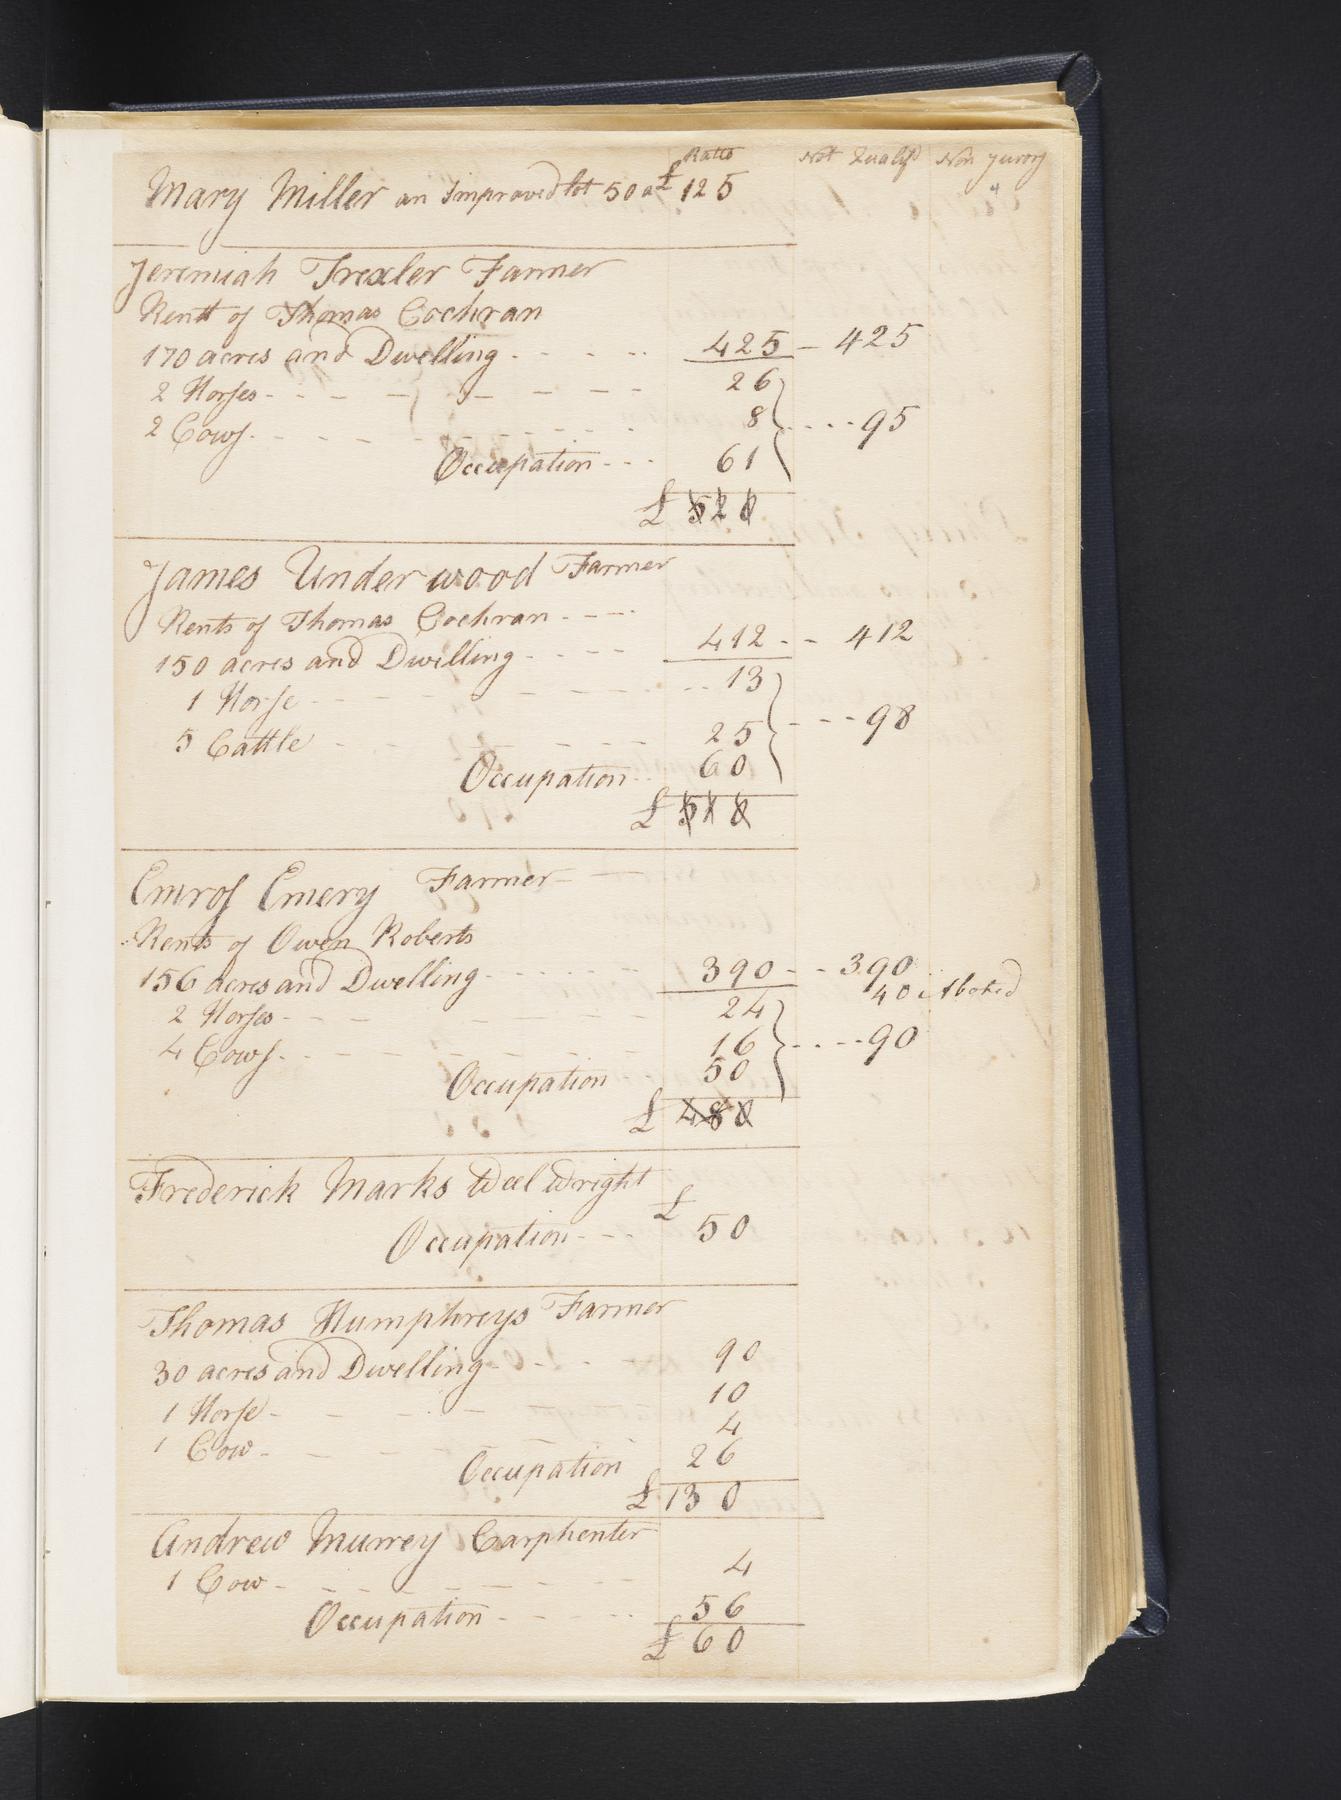 Ratio Not Qualifd Non jurog
Mary Miller an Improved lot 50 a £ 125
Jeremiah Trexler Farmer
Rentt of Thomas Cochran
170 acres and Dwelling 425 — 425
2 Horses 26
2 Cows 8 95
Occupation 61
£ 520
James Underwood Farmer
Rents of Thomas Cochran
150 acres and Dwelling 412 — 412
1 Horse 13
5 Cattle 25 98
Occupation 60
£ 510
Emros Emery Farmer
Rents of Owen Roberts
156 acres and Dwelling 390 — 390
40
2 Horses 24
4 Cows 16 90
Occupation 50
£ 480
Frederick Marks Weel Wright
Occupation £ 50
Thomas Humphreys Farmer
30 acres and Dwelling 90
1 Horse 10
1 Cow 4
Occupation 26
£ 130
Andrew Murrey Carphenter
1 Cow 4
Occupation 56
£ 60